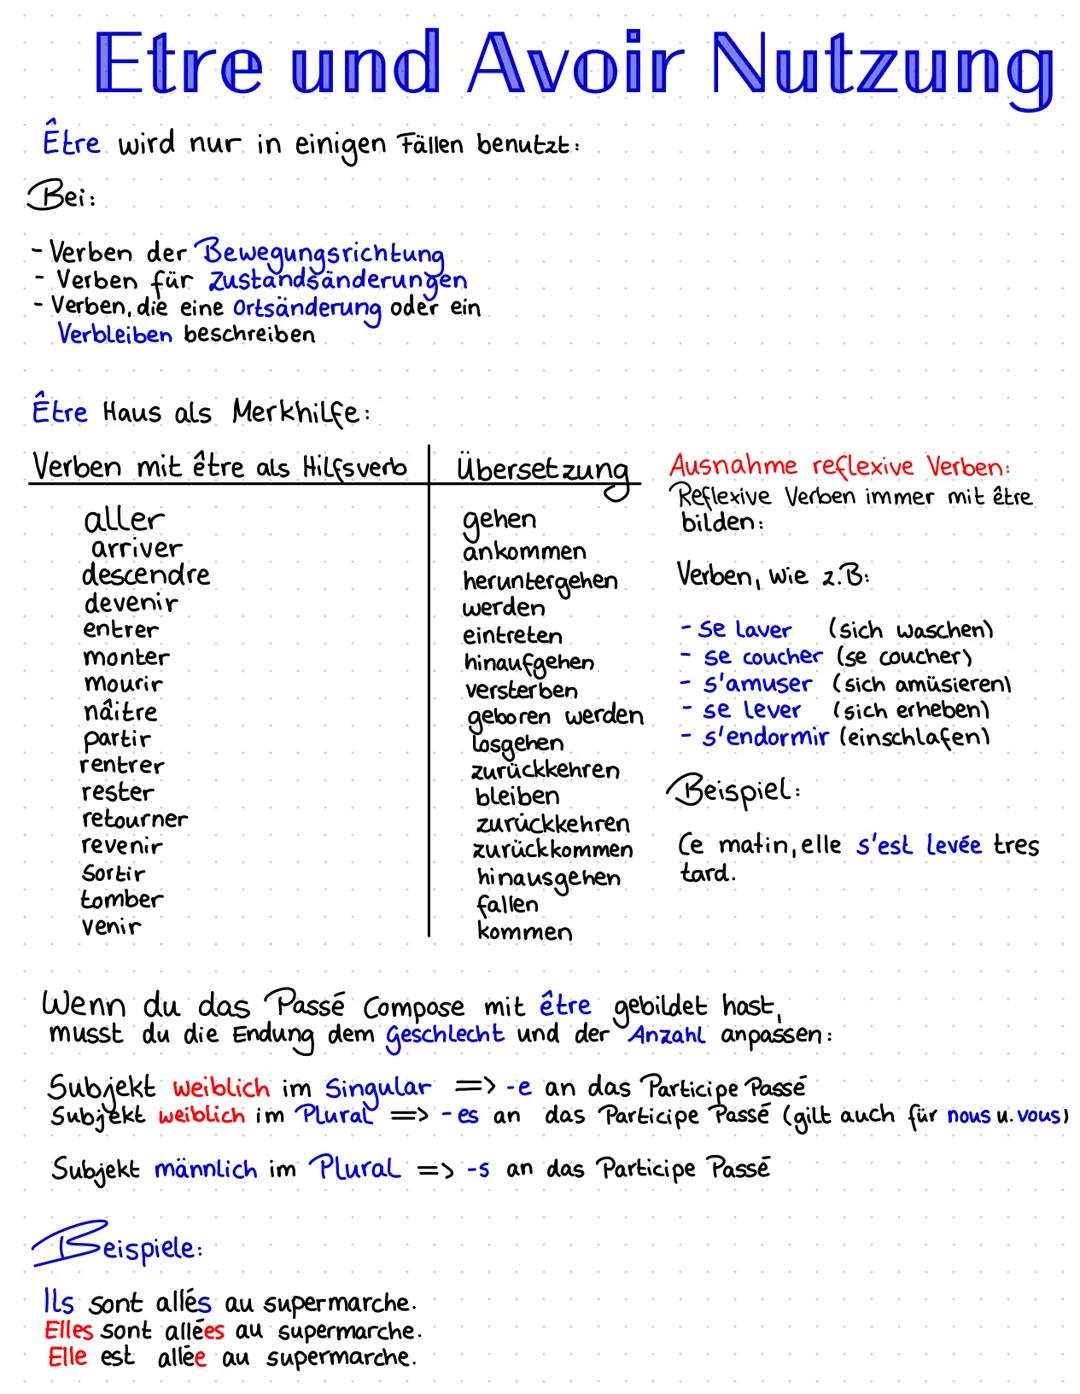 Etre und Avoir Nutzung
Être wird nur in einigen Fällen benutzt:
Bei:
- Verben der Bewegungsrichtung
- Verben für Zustandsänderungen
- Verben, die eine Ortsänderung oder ein
Verbleiben beschreiben
Être Haus als Merkhilfe:
Verben mit être als Hilfsverb
aller
arriver
descendre
devenir
entrer
monter
mourir
nâitre
partir
rentrer
rester
retourner
revenir
sortir
tomber
venir
Übersetzung
gehen
ankommen
heruntergehen
werden
eintreten
hinaufgehen
versterben
geboren werden
losgehen
zurückkehren
bleiben
zurückkehren
zurückkommen
hinausgehen
fallen
kommen
Ausnahme reflexive Verben:
Reflexive Verben immer mit être
bilden:
Verben, wie z.B:
- se laver (sich waschen)
- se coucher (se coucher)
- s'amuser (sich amüsieren)
- se lever (sich erheben)
- s'endormir (einschlafen)
Beispiel:
Ce matin, elle s'est levée tres
tard.
Wenn du das Passé Compose mit être gebildet hast,
musst du die Endung dem Geschlecht und der Anzahl anpassen:
Subjekt weiblich im Singular => -e an das Participe Passé
Subjekt weiblich im Plural => -es an das Participe Passé (gilt auch für nous u. vous)
Subjekt männlich im Plural => -s an das Participe Passé
Beispiele:
Ils sont allés au supermarche.
Elles sont allées au supermarche.
Elle est allée au supermarche.